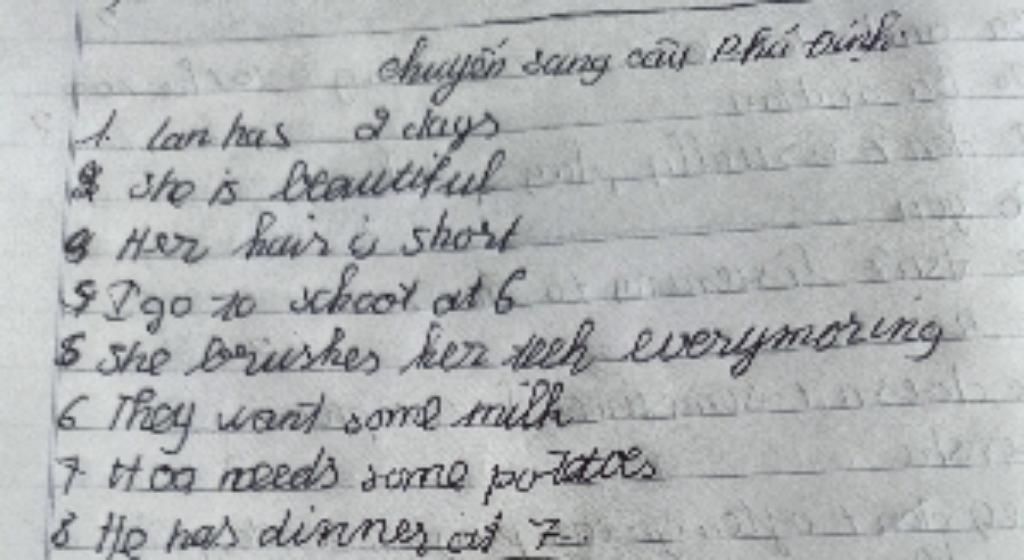 chuyển sang câu Phủ Định
1. lan has 2 days
2 she is beautiful
3 Her hair is short
4 I go to school at 6
5 she brushes her teeh everymoring
6 They want some milk
7 Hoa needs some potatoes
8 He has dinner at 7